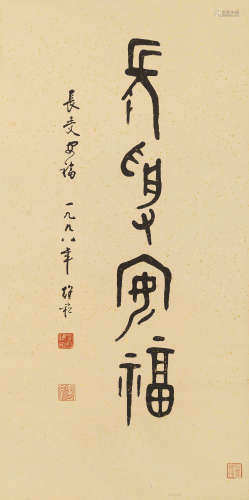 長受安福
長受安福 一九九八年